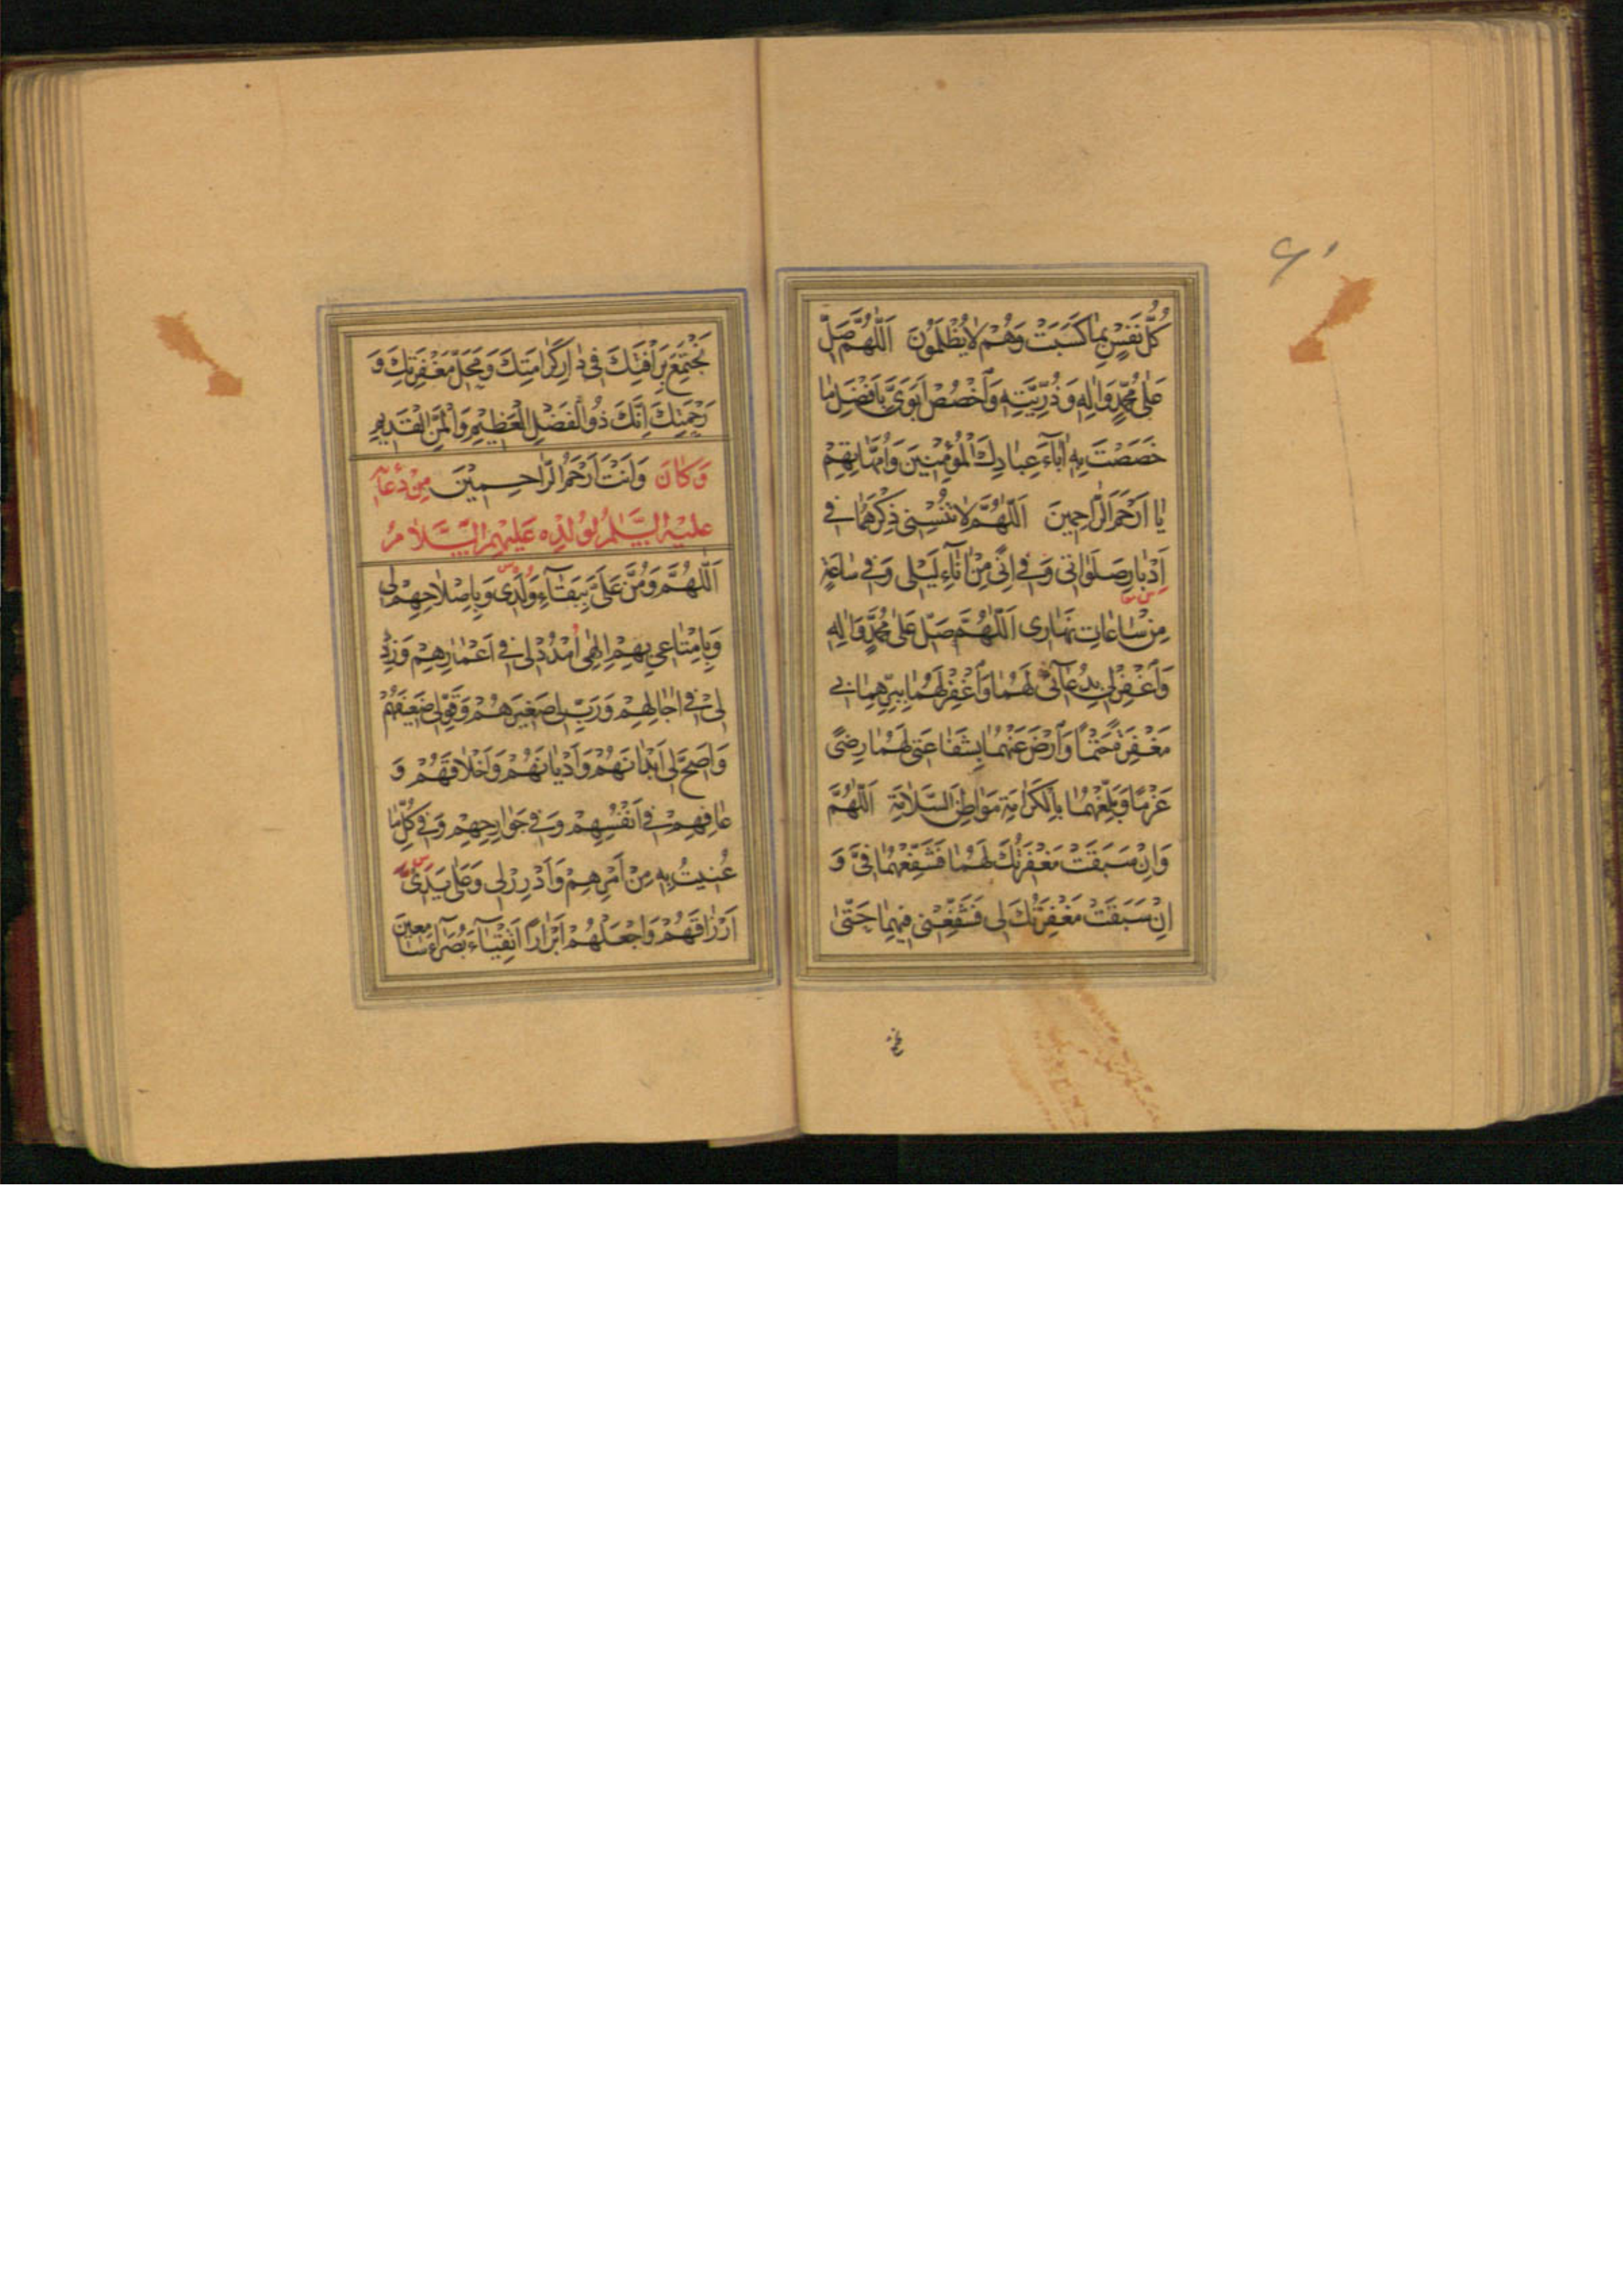 ۶۱
كُلُّ نَفْسٍ بِمٰا كَسَبَتْ وَهُمْ لٰا يُظْلَمُونَ اَللّٰهُمَّ صَلِّ
عَلٰى مُحَمَّدٍ وَاٰلِهِ وَذُرِّيَّتِهِ وَاخْصُصْ اَبَوَىَّ بِاَفْضَلِ مٰا
خَصَصْتَ بِهِ اٰبٰاءَ عِبٰادِكَ الْمُؤْمِنِينَ وَاُمَّهٰاتِهِمْ
يٰا اَرْحَمَ الرّٰاحِمِينَ اَللّٰهُمَّ لٰا تُنْسِنِى ذِكْرَهُمٰا فِى
اَدْبٰارِ صَلَوٰاتِى وَفِى اِنًى مِنْ اٰنٰاءِ لَيْلِى وَفِى سٰاعَةٍ
مِنْ سٰاعٰاتِ نَهٰارِى اَللّٰهُمَّ صَلِّ عَلٰى مُحَمَّدٍ وَاٰلِهِ
وَاغْفِرْ لِى بِدُعٰائِى لَهُمٰا وَاغْفِرْ لَهُمٰا بِبِرِّهِمٰا بِى
مَغْفِرَةً حَتْمًا وَارْضَ عَنْهُمٰا بِشَفٰاعَتِى لَهُمٰا رِضًى
عَزْمًا وَبَلِّغْهُمٰا بِالْكَرٰامَةِ مَوٰاطِنَ السَّلٰامَةِ اَللّٰهُمَّ
وَاِنْ سَبَقَتْ مَغْفِرَتُكَ لَهُمٰا فَشَفِّعْهُمٰا فِىَّ وَ
اِنْ سَبَقَتْ مَغْفِرَتُكَ لِى فَشَفِّعْنِى فِيهِمٰا حَتّٰى
نَجْتَمِعَ بِرَاْفَتِكَ فِى دٰارِ كَرٰامَتِكَ وَمَحَلِّ مَغْفِرَتِكَ وَ
رَحْمَتِكَ اِنَّكَ ذُو الْفَضْلِ الْعَظِيمِ وَالْمَنِّ الْقَدِيمِ
وَكٰانَ وَاَنْتَ اَرْحَمُ الرّٰاحِمِينَ مِنْ دُعٰائِهِ
عَلَيْهِ السَّلٰمُ لِوُلْدِهِ عَلَيْهِمُ السَّلٰامُ
اَللّٰهُمَّ وَمُنَّ عَلَىَّ بِبَقٰاءِ وُلْدِى وَبِاِصْلٰاحِهِمْ لِى
وَبِاِمْتٰاعِى بِهِمْ اِلٰهِى اُمْدُدْ لِى فِى اَعْمٰارِهِمْ وَزِدْ
لِى فِى اٰجٰالِهِمْ وَرَبِّ لِى صَغِيرَهُمْ وَقَوِّ لِى ضَعِيفَهُمْ
وَاَصِحَّ لِى اَبْدٰانَهُمْ وَاَدْيٰانَهُمْ وَاَخْلٰاقَهُمْ وَ
عٰافِهِمْ فِى اَنْفُسِهِمْ وَفِى جَوٰارِحِهِمْ وَفِى كُلِّ مٰا
عُنِيتُ بِهِ مِنْ اَمْرِهِمْ وَاَدْرِرْ لِى وَعَلٰى يَدَىَّ
اَرْزٰاقَهُمْ وَاجْعَلْهُمْ اَبْرٰارًا اَتْقِيٰاءَ بُصَرٰاءَ سٰامِعِينَ